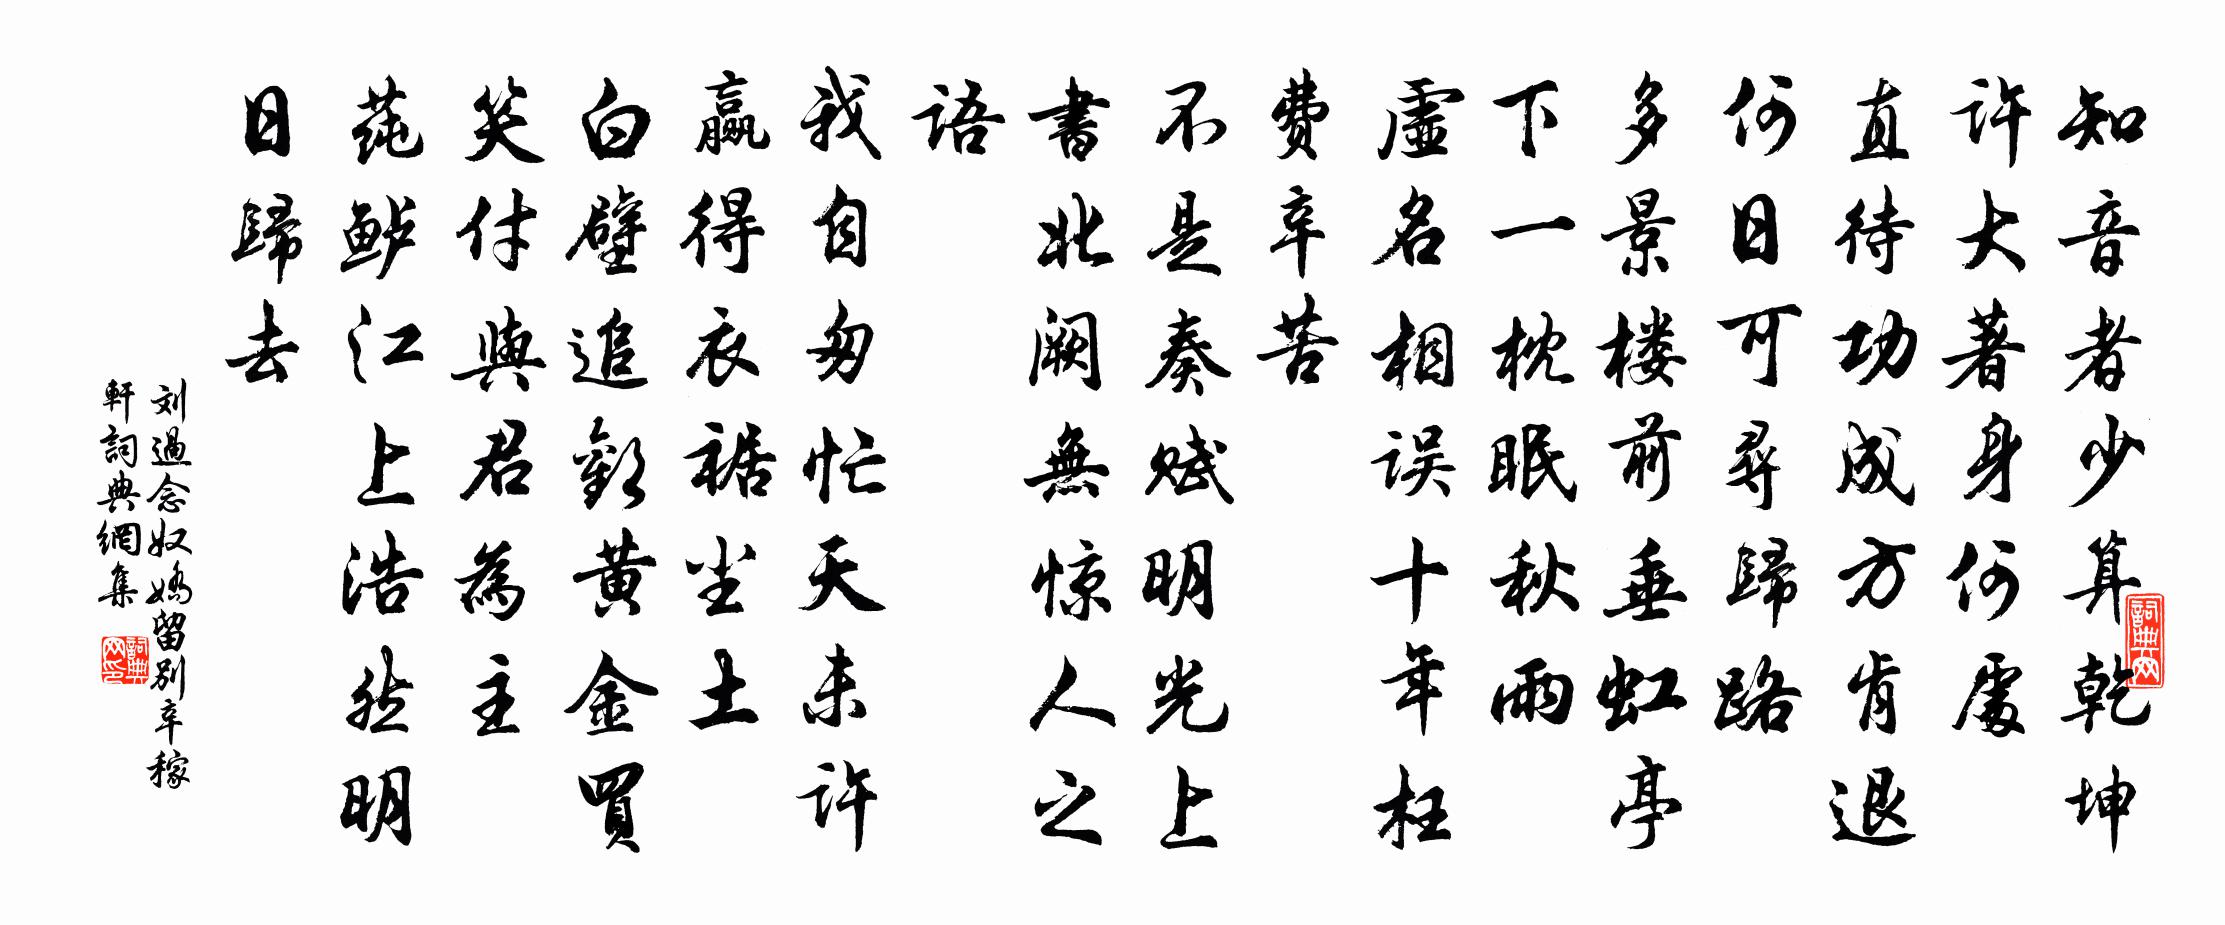 知音者少算乾坤
許大著身何處
直待功成方肯退
何日可尋歸路
多景楼前垂虹亭
下一枕眠秋雨
虛名相误十年枉
費辛苦
不是奏赋明光上
書北阙無惊人之
語
我自匆忙天未许
赢得衣裾尘土
白璧追歡黄金買
笑付與君為主
莼鲈江上浩然明
日歸去
刘過念奴嬌留别辛稼
軒詞典網集
詞典网
詞典网印